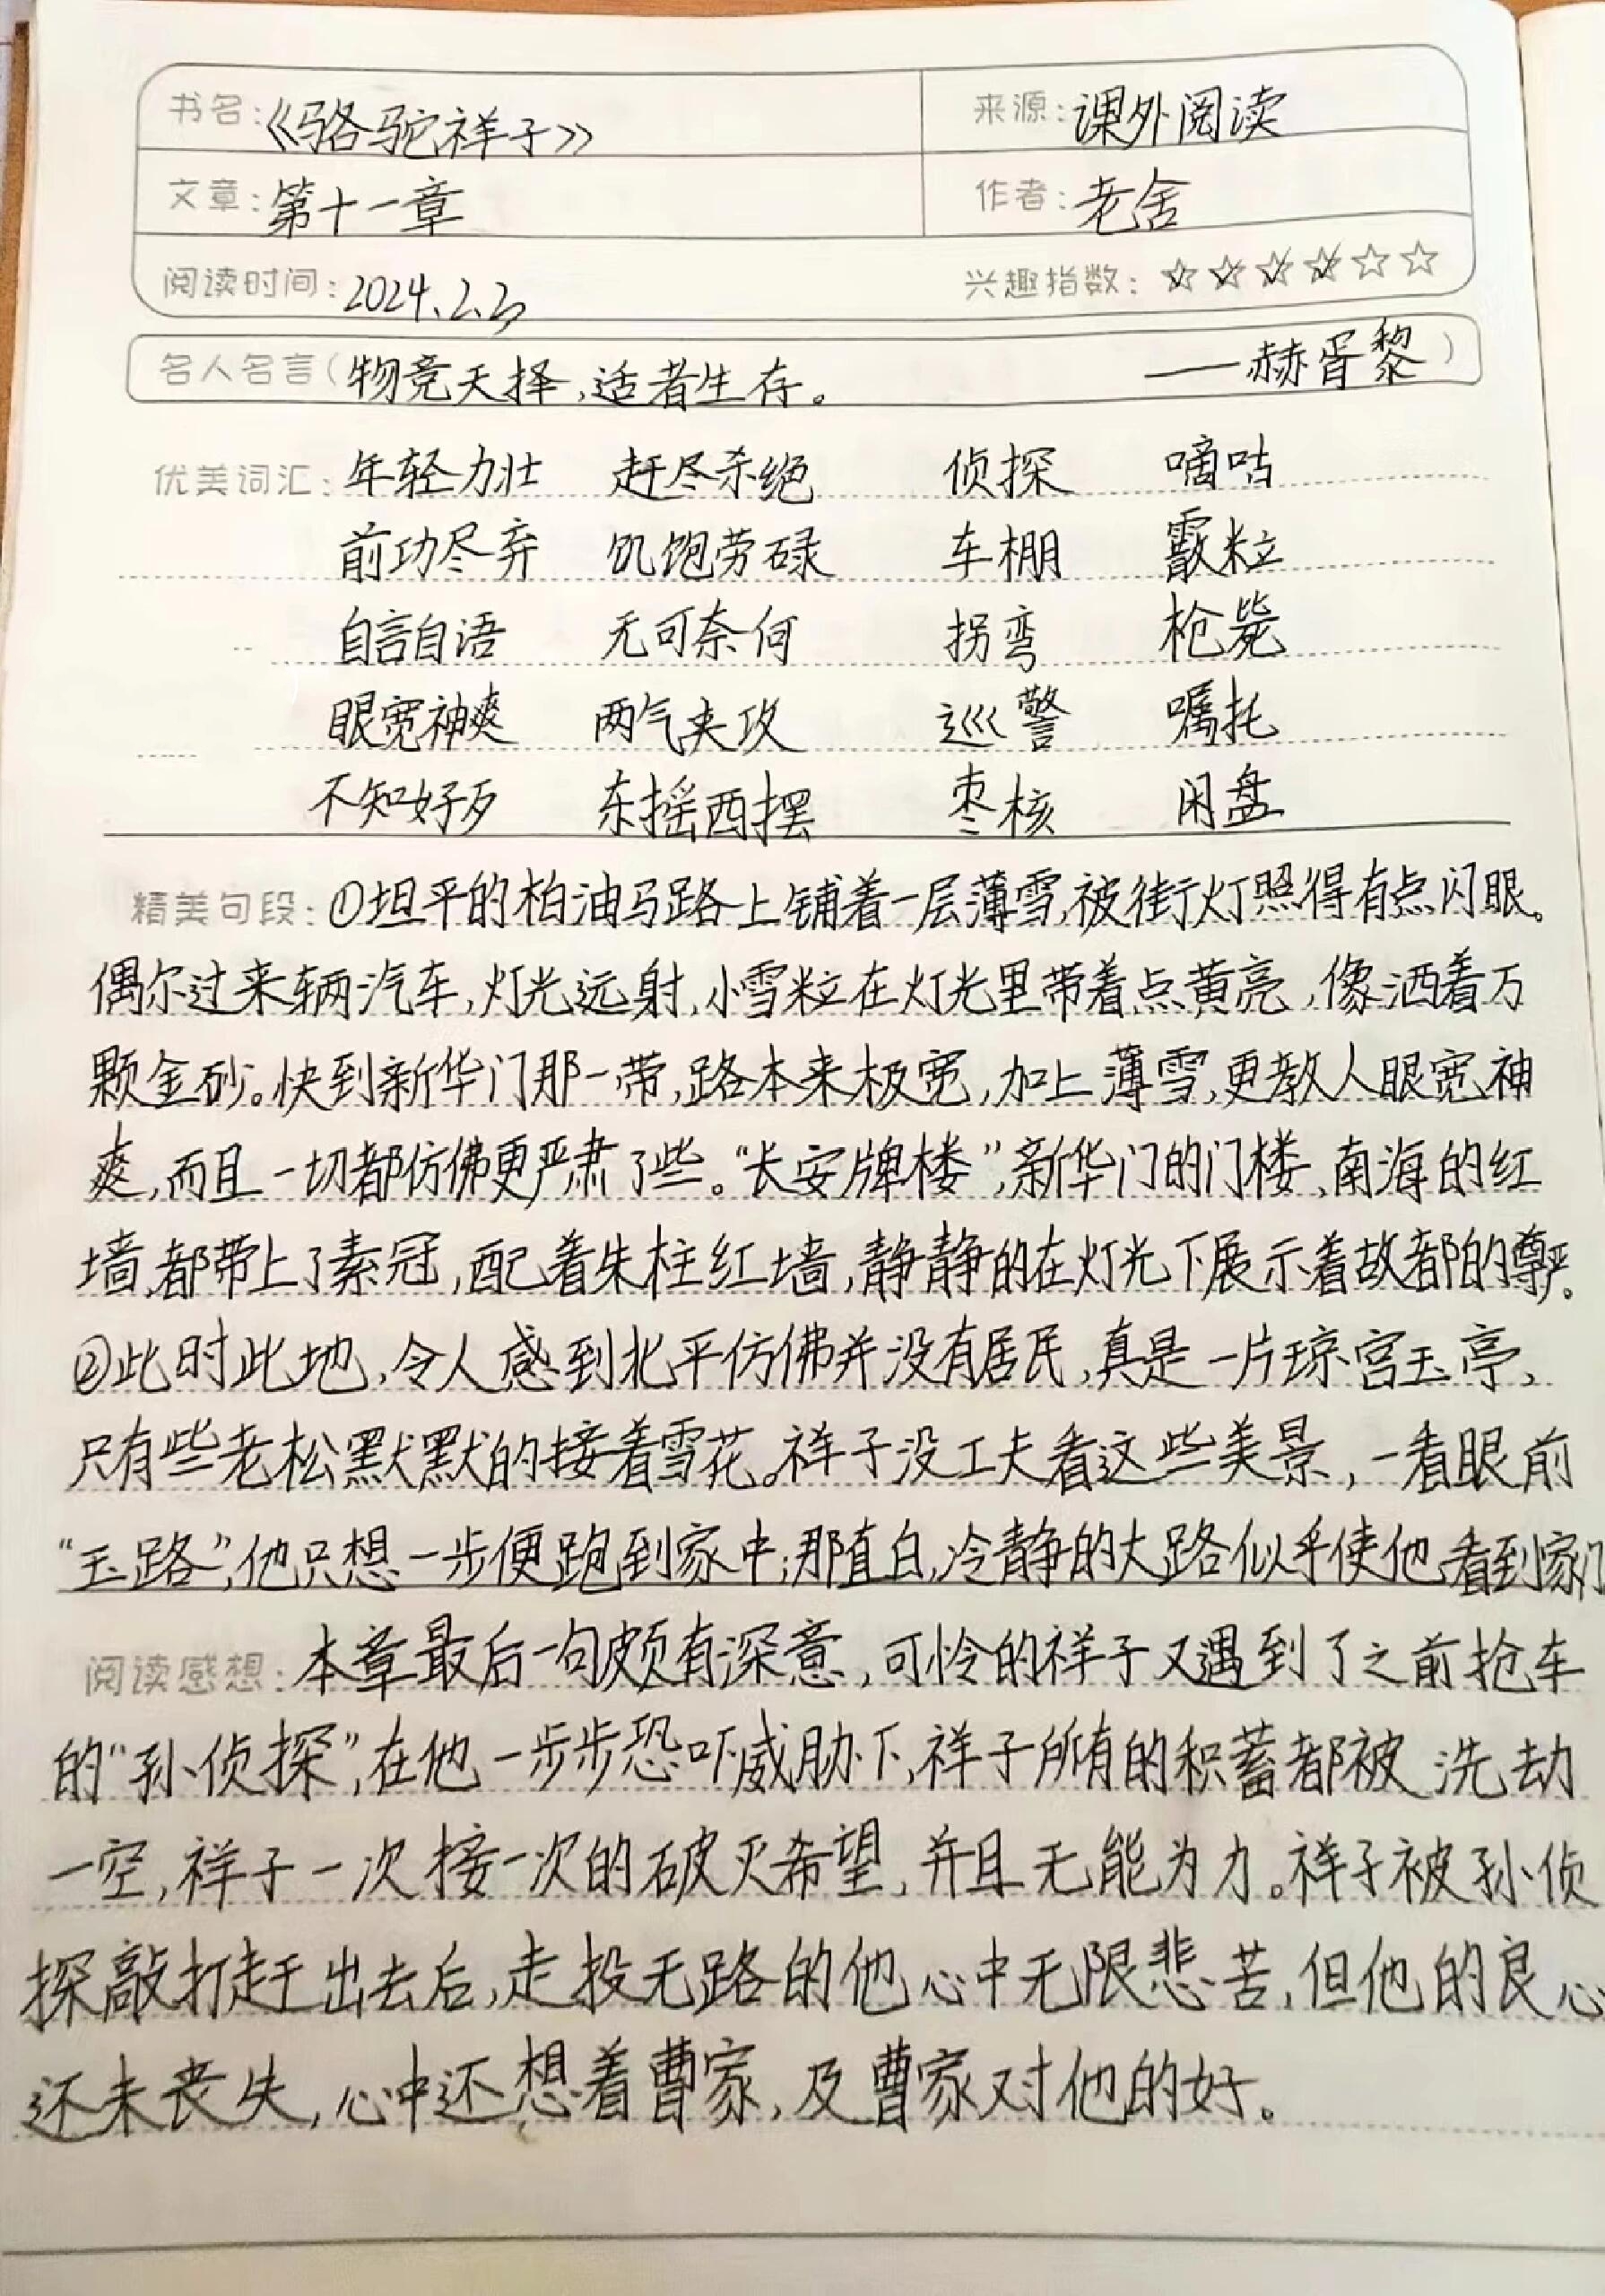 书名:《骆驼祥子》 来源:课外阅读
文章:第十一章 作者:老舍
阅读时间:2024.2.23 兴趣指数:☆☆☆☆☆☆
名人名言(物竞天择,适者生存。 ——赫胥黎)
优美词汇:年轻力壮 赶尽杀绝 侦探 嘀咕
前功尽弃 饥饱劳碌 车棚 霰粒
自言自语 无可奈何 拐弯 枪毙
眼宽神爽 两气夹攻 巡警 嘱托
不知好歹 东摇西摆 枣核 闲盘
精美句段:①坦平的柏油马路上铺着一层薄雪,被街灯照得有点闪眼。
偶尔过来辆汽车,灯光远射,小雪粒在灯光里带着点黄亮,像洒着万
颗金砂。快到新华门那一带,路本来极宽,加上薄雪,更教人眼宽神
爽,而且一切都仿佛更严肃了些。“长安牌楼”,新华门的门楼、南海的红
墙,都带上了素冠,配着朱柱红墙,静静的在灯光下展示着故都的尊严。
②此时此地,令人感到北平仿佛并没有居民,真是一片琼宫玉亭,
只有些老松默默的接着雪花。祥子没工夫看这些美景,一看眼前
“玉路”,他只想一步便跑到家中;那直白,冷静的大路似乎使他看到家门
阅读感想:本章最后一句颇有深意,可怜的祥子又遇到了之前抢车
的“孙侦探”,在他一步步恐吓威胁下,祥子所有的积蓄都被洗劫
一空,祥子一次接一次的破灭希望,并且无能为力。祥子被孙侦
探敲打赶出去后,走投无路的他心中无限悲苦,但他的良心
还未丧失,心中还想着曹家,及曹家对他的好。